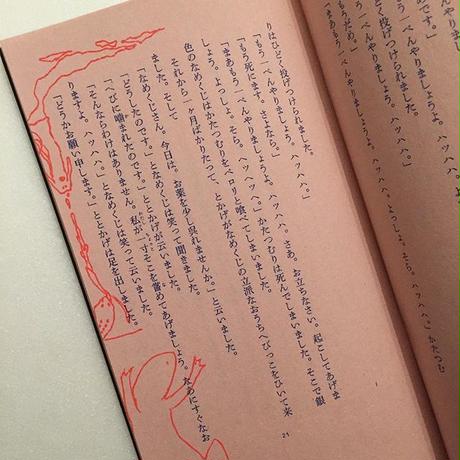 投げつけられました。
めです。」
ぺんやりましょうよ。ハッハハ。」
もうだめ。」
まあもう一ぺんやりましょうよ。よっしょ。そら。ハッハハ。」かたつむ
りはひどく投げつけられました。
「もう一ぺんやりましょう。ハッハハ。」
「もう死にます。さよなら。」
「まあもう一ぺんやりましょうよ。ハッハハ。さあ。お立ちなさい。起こしてあげま
しょう。よっしょ。そら。ヘッヘッヘ。」かたつむりは死んでしまいました。そこで銀
色のなめくじはかたつむりをペロリと喰べてしまいました。
それから一ヶ月ばかりたって、とかげがなめくじの立派なおうちへびっこをひいて来
ました。そして
「なめくじさん。今日は。お薬を少し呉れませんか。」と云いました。
「どうしたのです。」となめくじは笑って聞きました。
「へびに噛まれたのです。」ととかげが云いました。
「そんならわけはありません。私が一寸そこを嘗めてあげましょう。なあにすぐなお
りますよ。ハッハハ。」となめくじは笑って云いました。
「どうかお願い申します。」ととかげは足を出しました。
21